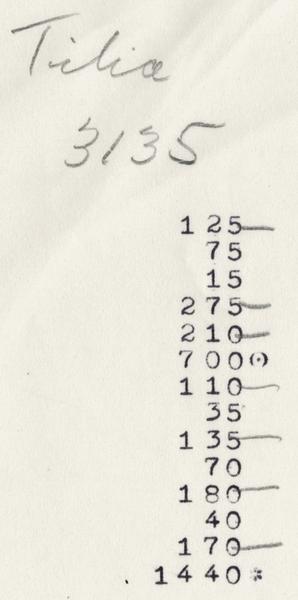 Tilia
3135
1 25
75
15
2 75
2 10
7 00
1 10
35
1 35
70
1 80
40
1 70
14 40 *